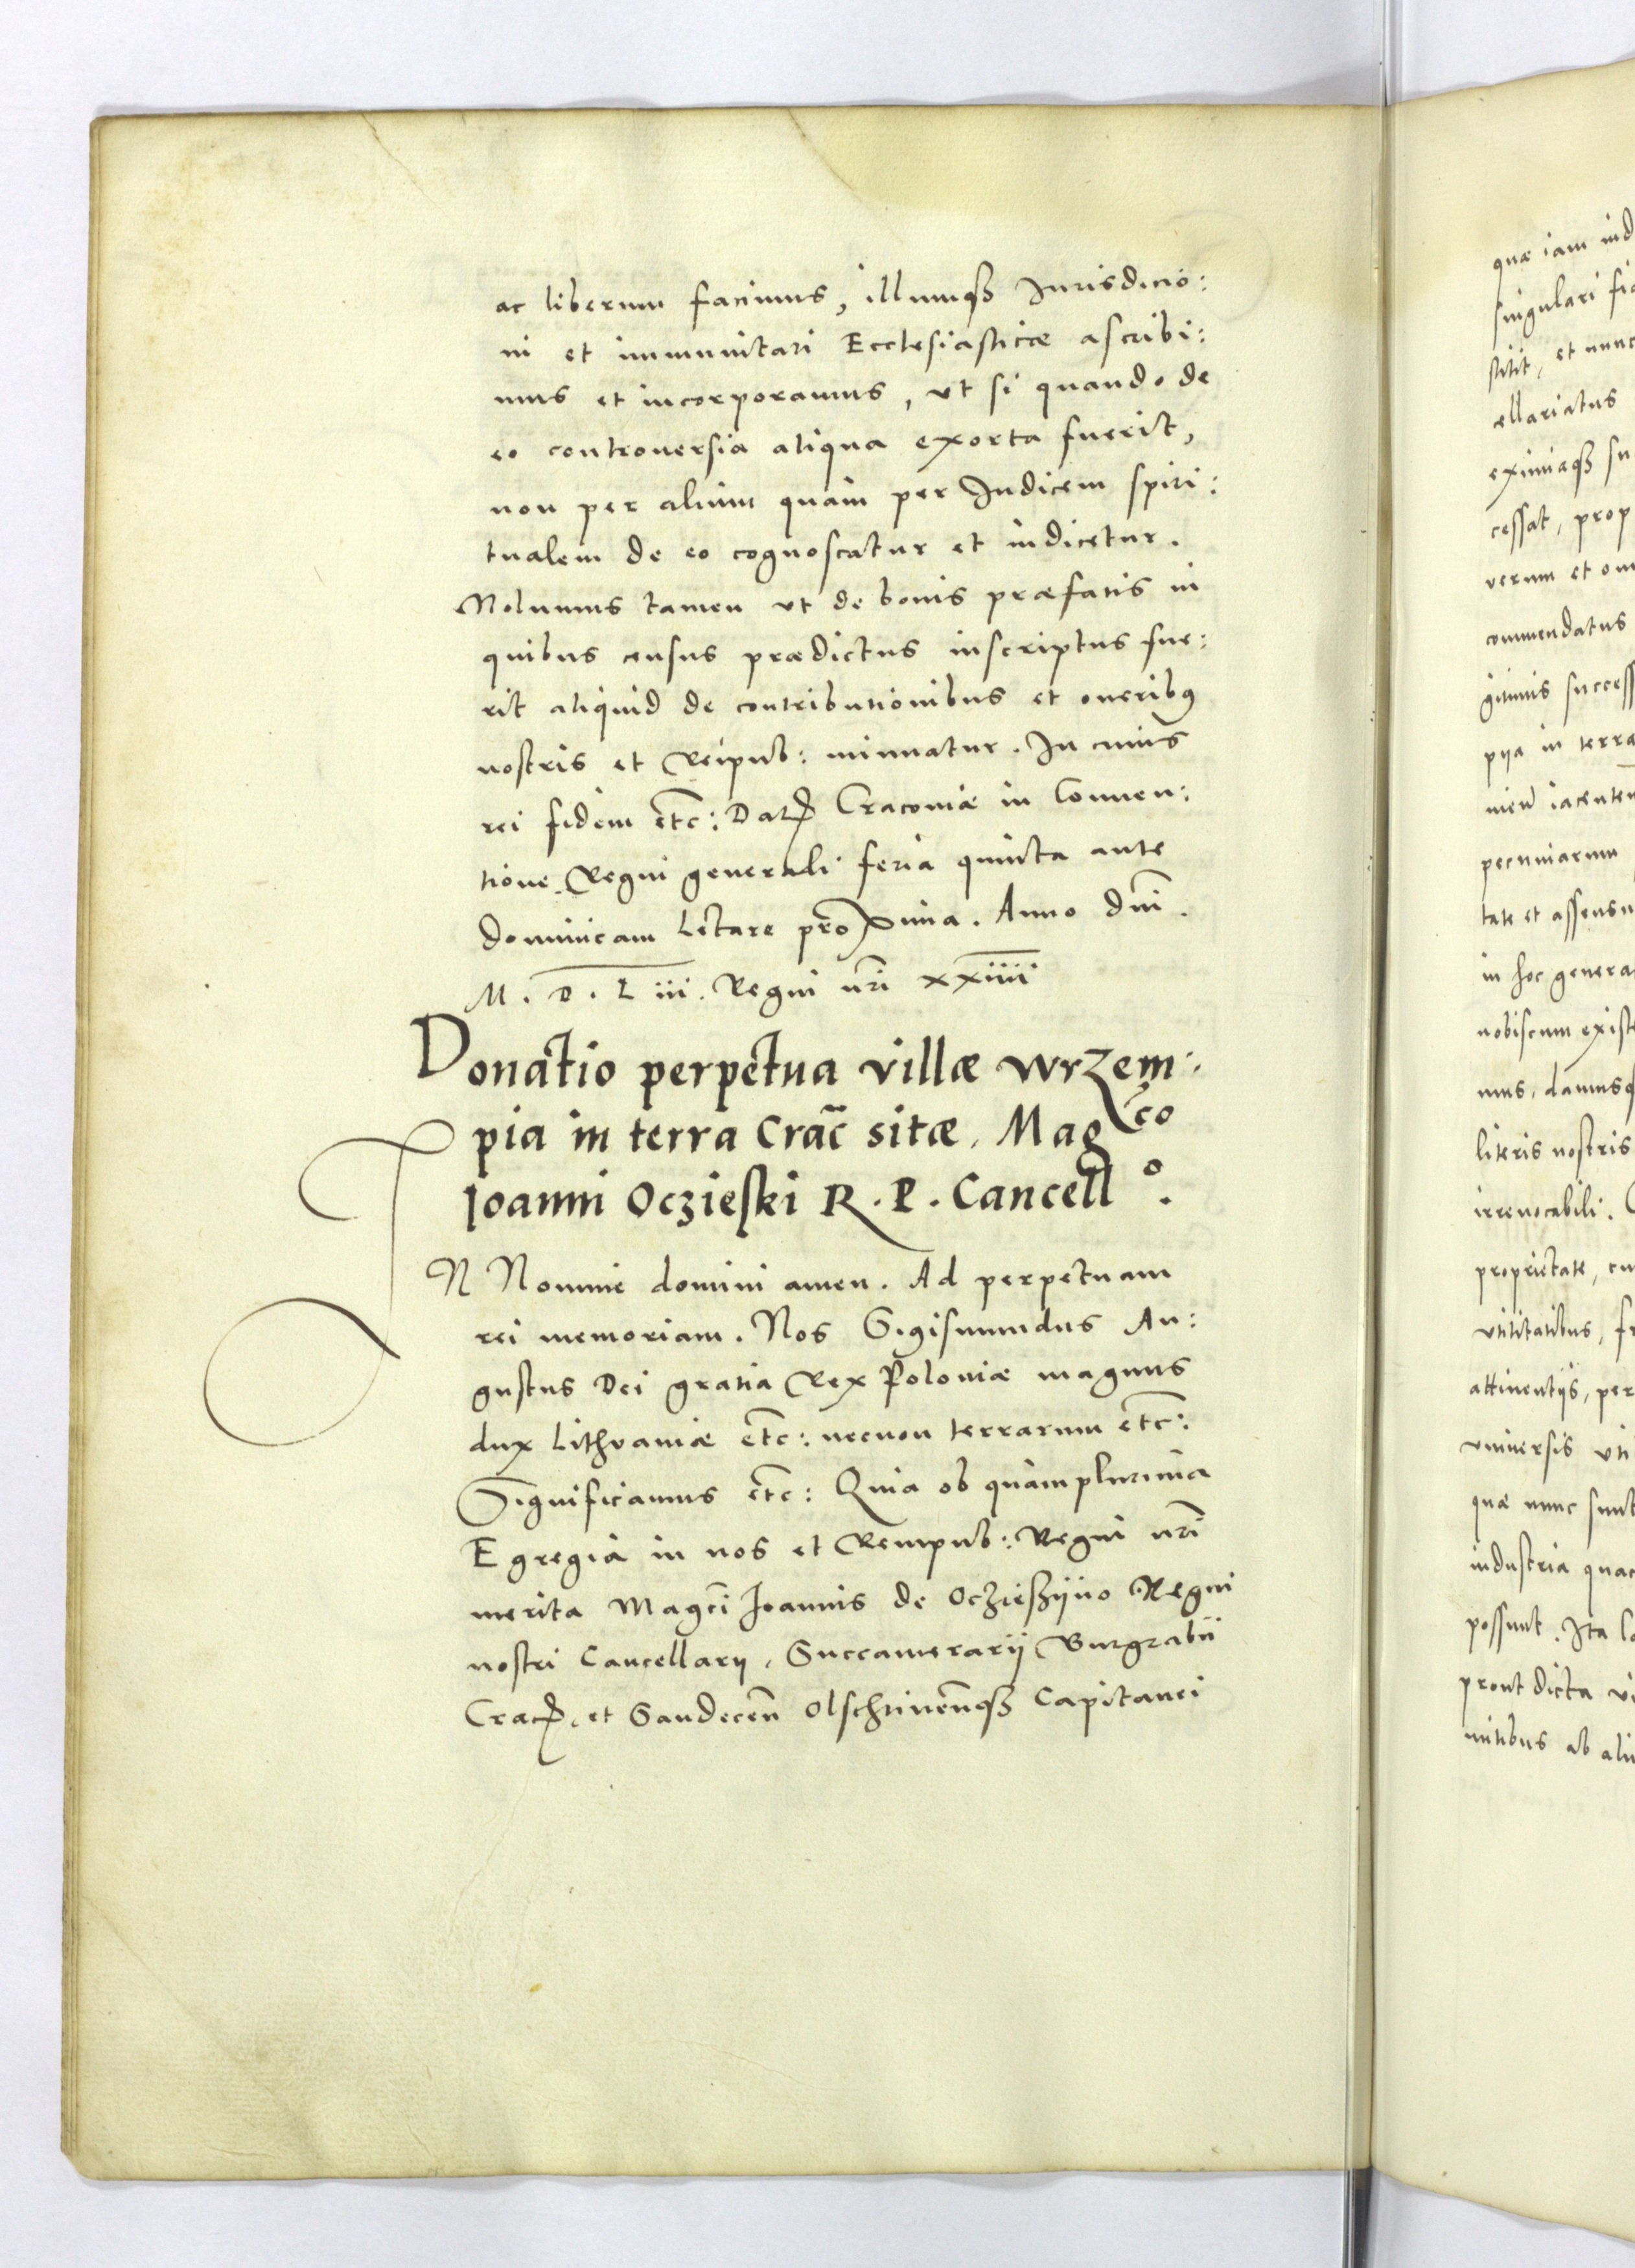 ac liberum facimus, illumqȝ Iurisdicio:
ni et immunitati Ecclesiasticæ ascribi:
mus et incorporamus, vt si quando de
eo controuersia aliqua exorta fuerit,
non per alium quam per Iudicem spiri:
tualem de eo cognoscatur et iudicetur.
Nolumus tamen vt de bonis præfatis in
quibus census prædictus inscriptus fue:
rit aliquid de contributionibus et oneribꝰ
nostris et Reipub: minuatur. In cuius
rei fidem etc: Dat Cracouiæ in Conuen:
tione Regni generali feria quinta ante
dominicam Letare proxima. Anno dni.
M. D. L iii. Regni nri xxiiii
Donatio perpetua villæ Wrzem:
pia in terra Crac sitæ, Magco
Ioanni Oczieski R. P. Cancello.
IN Nomine domini amen. Ad perpetuam
rei memoriam. Nos Sigismundus Au:
gustus Dei gratia Rex Poloniæ magnus
dux Lithvaniæ etc: necnon terrarum etc:
Significamus etc: Quia ob quamplurima
Egregia in nos et Rempub: Regni nri
merita Magci Ioannis de Oczieszijno Regni
nostri Cancellarij, Succamerarij Burgrabii
Crac, et Sandecen Olschtinenqȝ Capitanei
quæ iam ind
singulari fi
stitit, et nunc
ellariatus
eximiaqȝ su
cessat, prop
verum et om
commendatus
gitimis success
pia in terra
nien iacenten
pecuniarum
tate et assensu
in hoc genera
nobiscum existe
mus, damusq
literis nostris
irreuocabili.
proprietate, cu
vtilitatibus, fr
attinentijs, per
vniuersis vti
quæ nunc sunt
industria quac
possunt. Ita
prout dicta vi
mitibus ab aliis